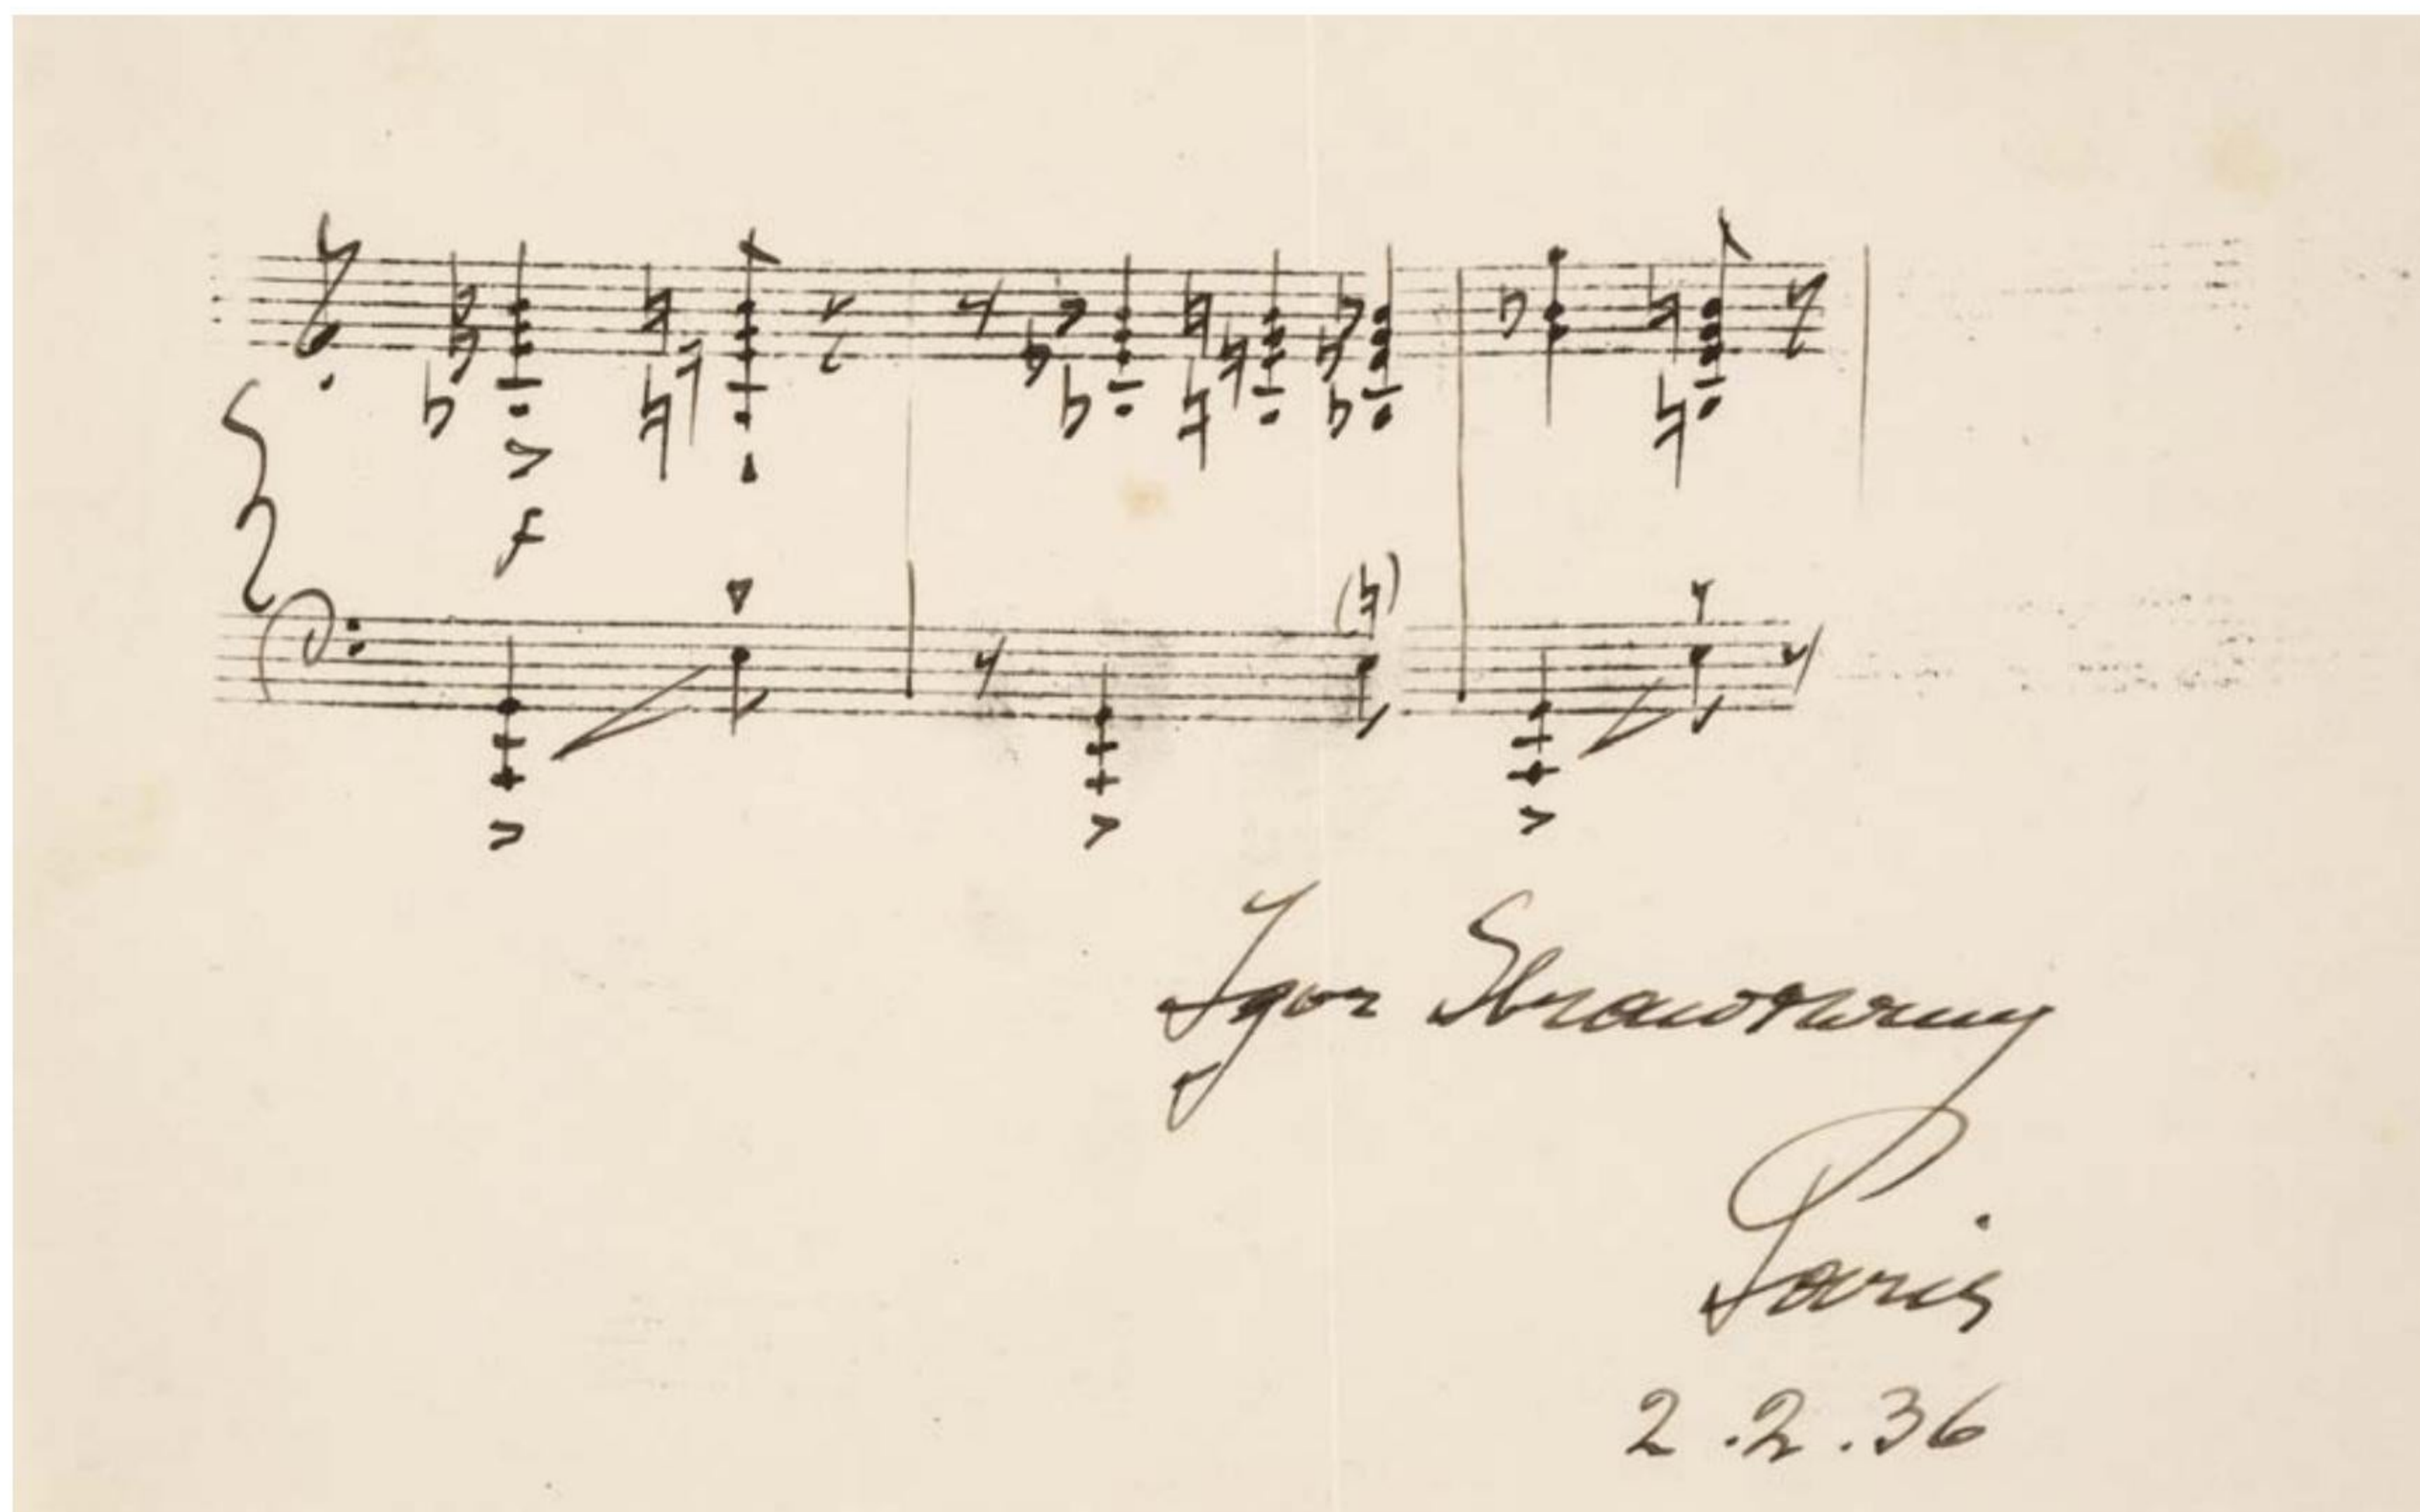 f
Igor Strawinsky
Paris
2.2.36